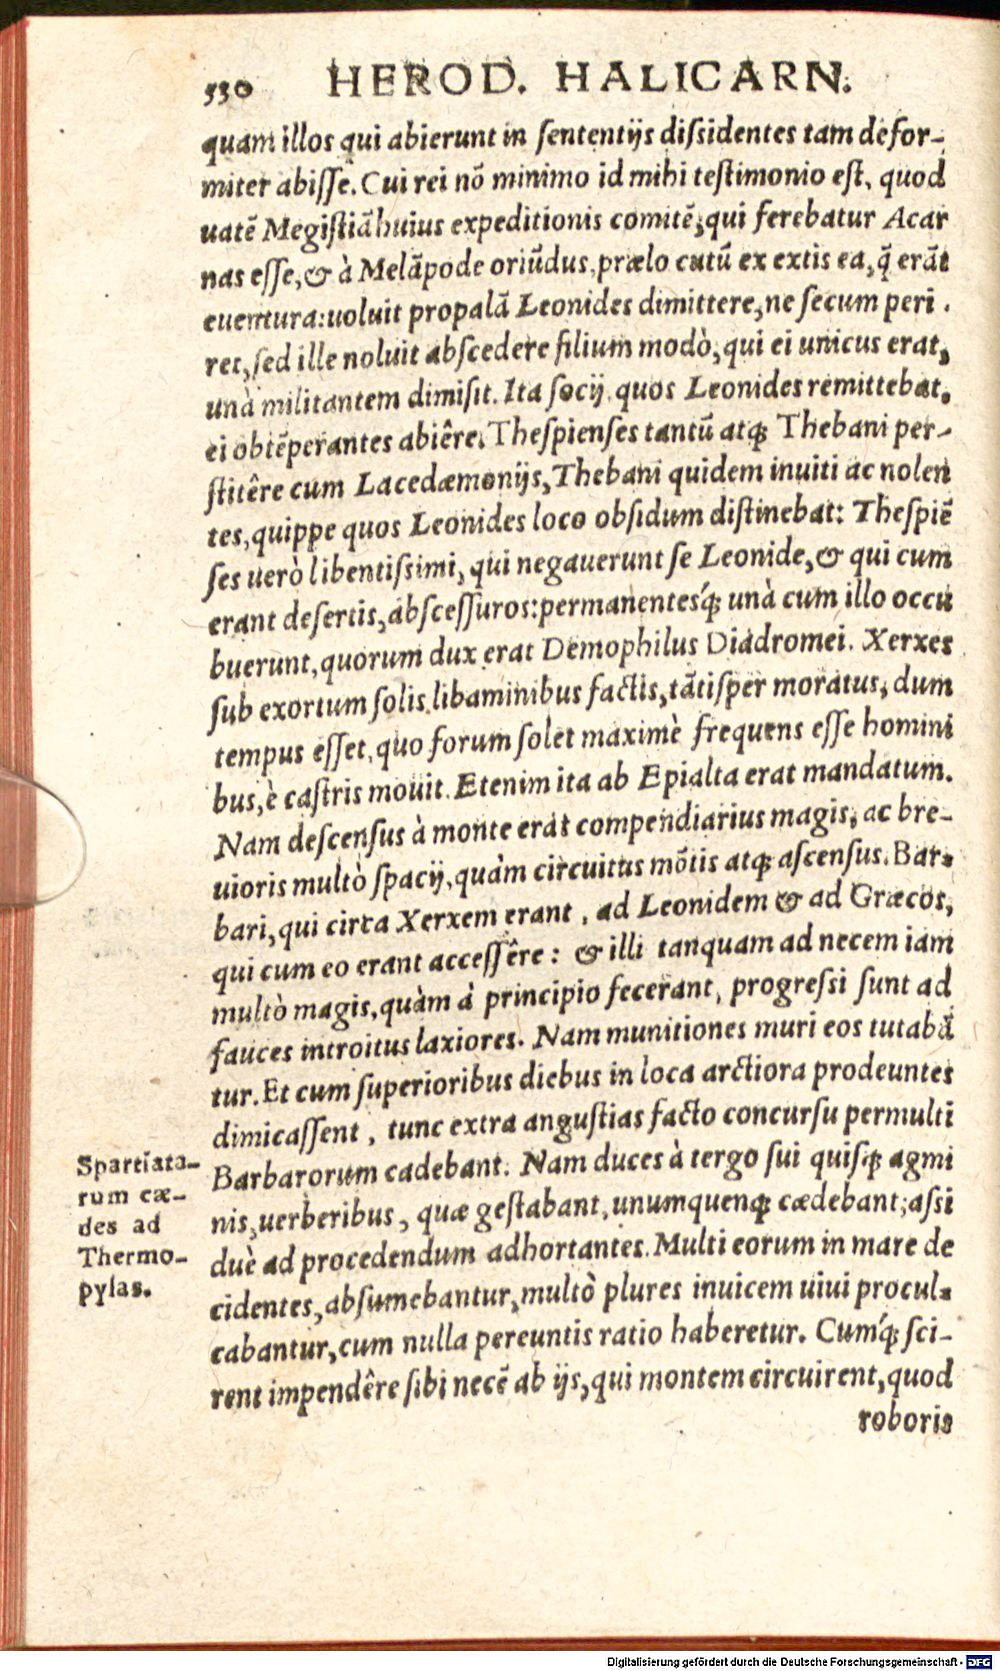 530 HEROD. HALICARN.
quam illos qui abierunt in ſententijs diſsidentes tam defor-
miter abiſſe. Cui rei nõ minimo id mihi teſtimonio eſt, quod
uatẽ Megiſtiã huius expeditionis comitẽ, qui ferebatur Acar
nas eſſe, & à Melãpode oriũdus, prælo cutũ ex extis ea, q̃ erãt
euentura: uoluit propalã Leonides dimittere, ne ſecum peri.
ret, ſed ille noluit abſcedere filium modò, qui ei unicus erat,
unà militantem dimiſit. Ita ſocij quos Leonides remittebat,
ei obtẽperantes abiêre. Theſpienſes tantũ atq; Thebani per-
ſtitêre cum Lacedæmonijs, Thebani quidem inuiti ac nolen
tes, quippe quos Leonides loco obſidum diſtinebat: Theſpiẽ
ſes uerò libentiſsimi, qui negauerunt ſe Leonide, & qui cum
erant deſertis, abſceſſuros: permanentesq́; unà cum illo occu
buerunt, quorum dux erat Demophilus Diadromei. Xerxes
ſub exortum ſolis libaminibus factis, tãtiſper moratus, dum
tempus eſſet, quo forum ſolet maximè frequens eſſe homini
bus, è caſtris mouit. Etenim ita ab Epialta erat mandatum.
Nam deſcenſus à monte erat compendiarius magis, ac bre-
uioris multò ſpacij, quàm circuitus mõtis atq; aſcenſus. Bar-
bari, qui circa Xerxem erant, ad Leonidem & ad Græcos,
qui cum eo erant acceſſêre: & illi tanquam ad necem iam
multò magis, quàm à principio fecerant, progreſsi ſunt ad
fauces introitus laxiores. Nam munitiones muri eos tutabã
tur. Et cum ſuperioribus diebus in loca arctiora prodeuntes
dimicaſſent, tunc extra anguſtias facto concurſu permulti
Barbarorum cadebant. Nam duces à tergo ſui quiſq; agmi
nis, uerberibus, quæ geſtabant, unumquenq; cædebant, aſsi
duè ad procedendum adhortantes. Multi eorum in mare de
cidentes, abſumebantur, multò plures inuicem uiui procul-
cabantur, cum nulla pereuntis ratio haberetur. Cumq́; ſci-
rent impendêre ſibi necẽ ab ijs, qui montem circuirent, quod
roboris
Spartiata-
rum cæ-
des ad
Thermo-
pylas.
Digitalisierung gefördert durch die Deutsche Forschungsgemeinschaft - DFG